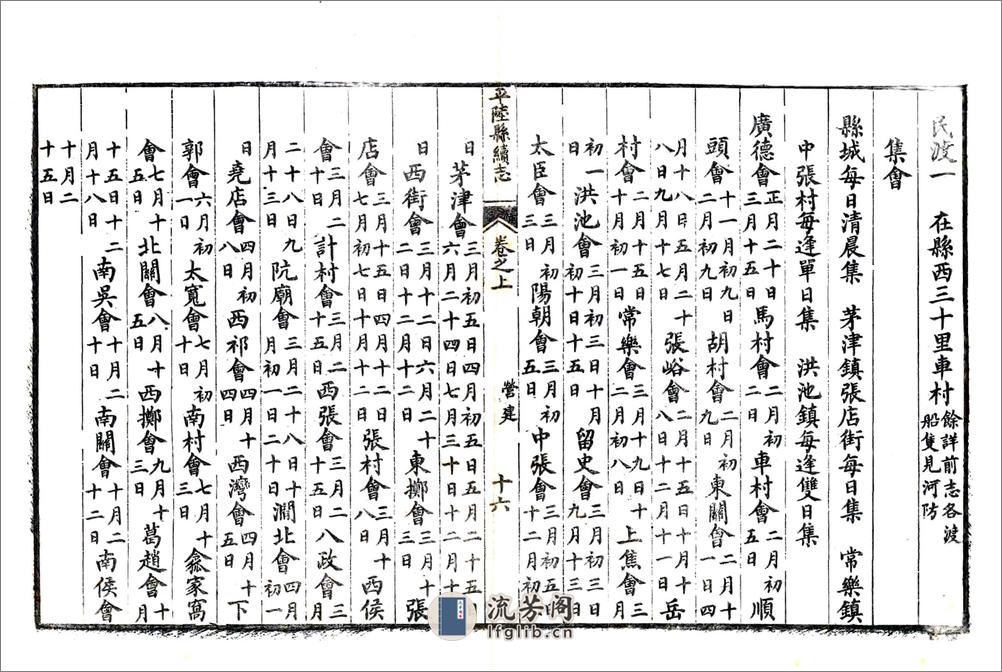 民渡一　在縣西三十里車村餘詳前志各渡船隻見河防
集會
縣城每日清晨集　茅津鎮張店街每日集　常樂鎮
中張村每逢單日集　洪池鎮每逢雙日集
廣德會正月二十日三月初五日馬村會二月初二日車村會二月初五日順
頭會十一月初九日二月初九日胡村會二月初九日東關會二月十一日四
月十八日五月二十八日九月十七日張峪會二月十五日十月十八日十二月十一日岳
村會二月十五日十月初一日常樂會三月十九日二月初八日上焦會三月十月
初一日洪池會三月初三日十月初十日十五日留史會三月初三日九月十三日
太臣會三月初三日陽朝會三月初五日中張會三月初五十二月初
平陸縣續志　卷之上　營建　十六
日茅津會三月初五日四月初五日五月二十五日六月二十四日七月三十日十二月二十
日西街會三月十二日六月二十二日十二月十二日東擲會三月十三日張
店會三月十五日四月十二日七月初七日張村會三月十八日西侯
會三月二十日計村會三月二十五日西張會三月二十五日八政會三月
二十八日九月十三日阬廟會三月二十八日十二月初一日澗北會四月初一
日堯店會四月初八日西祁會四月十四日西灣會四月十五日下
郭會六月初一日太寬會七月初十日南村會七月十三日龕家窩
會七月十五日北關會八月十五日西擲會九月十三日葛趙會十月
十五日十二月十八日南吳會十二月十日南關會十月二十二日南侯會
十月二十五日
流芳阁
lfglib.cn